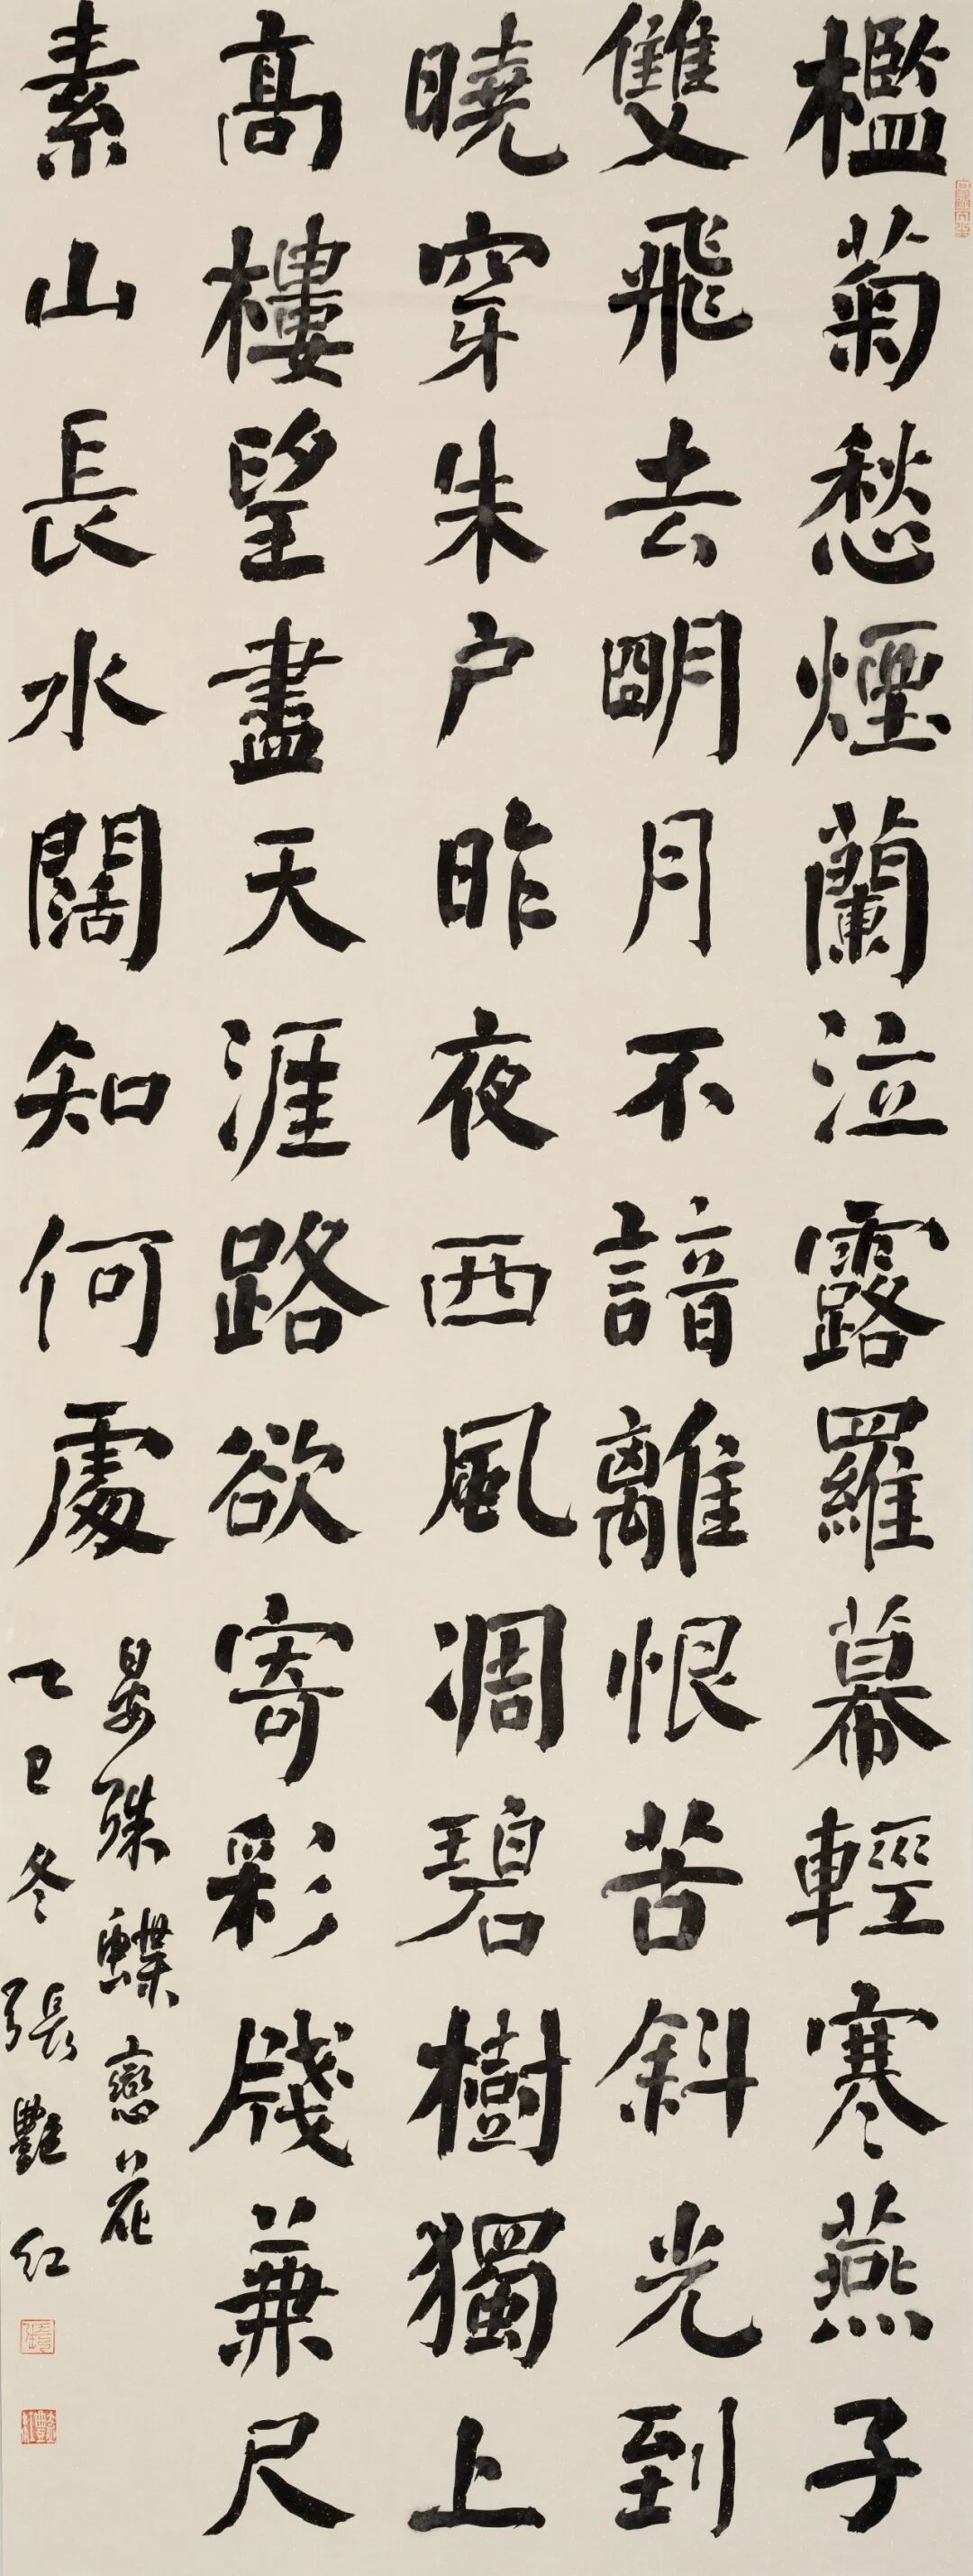 檻菊愁煙蘭泣露羅幕輕寒燕子
雙飛去明月不諳離恨苦斜光到
曉穿朱户昨夜西風凋碧樹獨上
高樓望盡天涯路欲寄彩牋兼尺
素山長水闊知何處
晏殊蝶戀花
乙巳冬張艷红